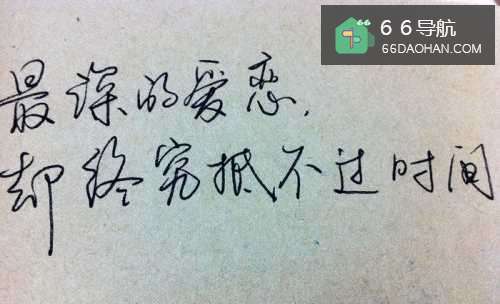 66导航
66DAOHAN.COM
最深的爱恋，
却终究抵不过时间